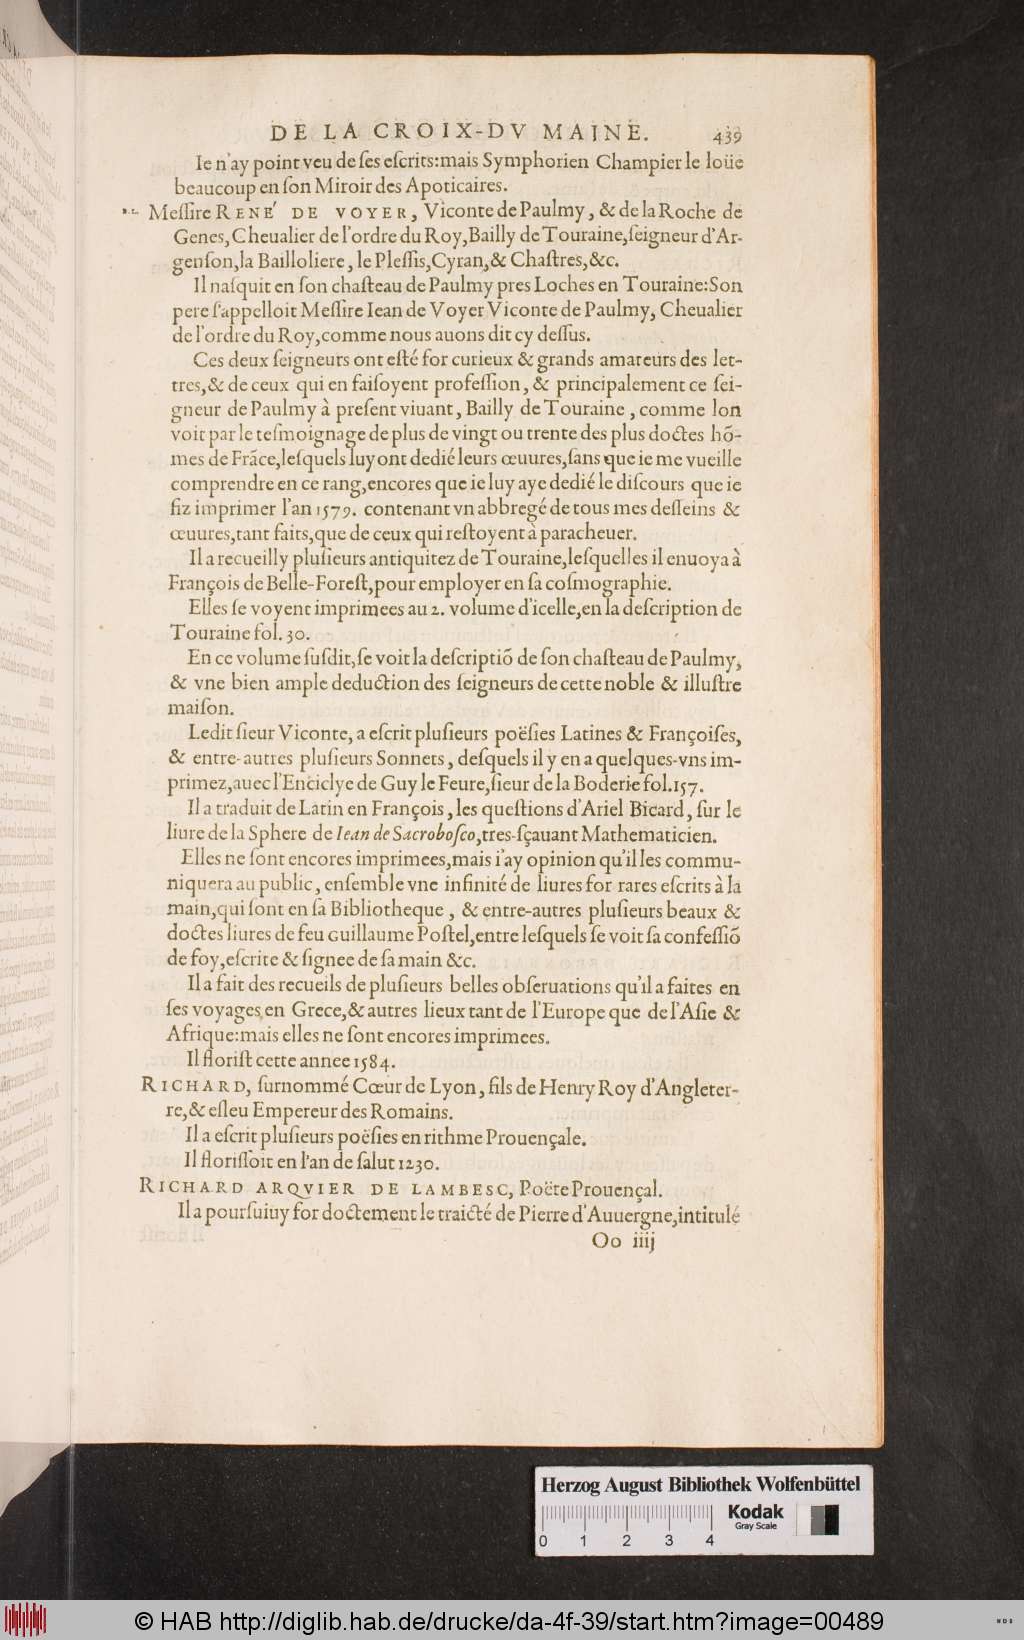 DE LA CROIX-DV MAINE. 439
Ie n'ay point veu de ſes eſcrits:mais Symphorien Champier le loüe
beaucoup en ſon Miroir des Apoticaires.
Meſſire RENE' DE VOYER, Viconte de Paulmy, & de la Roche de
Genes, Cheualier de l'ordre du Roy, Bailly de Touraine, ſeigneur d'Ar-
genſon, la Bailloliere, le Pleſſis, Cyran, & Chaſtres, &c.
Il naſquit en ſon chaſteau de Paulmy pres Loches en Touraine: Son
pere s'appelloit Meſſire Iean de Voyer Viconte de Paulmy, Cheualier
de l'ordre du Roy, comme nous auons dit cy deſſus.
Ces deux ſeigneurs ont eſté for curieux & grands amateurs des let-
tres, & de ceux qui en faiſoyent profeſſion, & principalement ce ſei-
gneur de Paulmy à preſent viuant, Bailly de Touraine, comme lon
voit par le teſmoignage de plus de vingt ou trente des plus doctes hõ-
mes de Frãce, leſquels luy ont dedié leurs œuures, ſans que ie me vueille
comprendre en ce rang, encores que ie luy aye dedié le diſcours que ie
fiz imprimer l'an 1579. contenant vn abbregé de tous mes deſſeins &
œuures, tant faits, que de ceux qui reſtoyent à paracheuer.
Il a recueilly pluſieurs antiquitez de Touraine, leſquelles il enuoya à
François de Belle-Foreſt, pour employer en ſa coſmographie.
Elles ſe voyent imprimees au 2. volume d'icelle, en la deſcription de
Touraine fol. 30.
En ce volume ſuſdit, ſe voit la deſcriptiõ de ſon chaſteau de Paulmy,
& vne bien ample deduction des ſeigneurs de cette noble & illuſtre
maiſon.
Ledit ſieur Viconte, a eſcrit pluſieurs poëſies Latines & Françoiſes,
& entre-autres pluſieurs Sonnets, deſquels il y en a quelques-vns im-
primez, auec l'Enciclye de Guy le Feure, ſieur de la Boderie fol. 157.
Il a traduit de Latin en François, les queſtions d'Ariel Bicard, ſur le
liure de la Sphere de Iean de Sacroboſco, tres-ſçauant Mathematicien.
Elles ne ſont encores imprimees, mais i'ay opinion qu'il les commu-
niquera au public, enſemble vne infinité de liures for rares eſcrits à la
main, qui ſont en ſa Bibliotheque, & entre-autres pluſieurs beaux &
doctes liures de feu Guillaume Poſtel, entre leſquels ſe voit ſa confeſſiõ
de foy, eſcrite & ſignee de ſa main &c.
Il a fait des recueils de pluſieurs belles obſeruations qu'il a faites en
ſes voyages, en Grece, & autres lieux tant de l'Europe que de l'Aſie &
Afrique: mais elles ne ſont encores imprimees.
Il florist cette annee 1584.
RICHARD, ſurnommé Cœur de Lyon, fils de Henry Roy d'Angleter-
re, & eſleu Empereur des Romains.
Il a eſcrit pluſieurs poëſies en rithme Prouençale.
Il floriſſoit en l'an de ſalut 1230.
RICHARD ARQVIER DE LAMBESC, Poëte Prouençal.
Il a pourſuiuy for doctement le traicté de Pierre d'Auuergne, intitulé
Oo iiij
Herzog August Bibliothek Wolfenbüttel
0 1 2 3 4
Kodak
Gray Scale
© HAB http://diglib.hab.de/drucke/da-4f-39/start.htm?image=00489